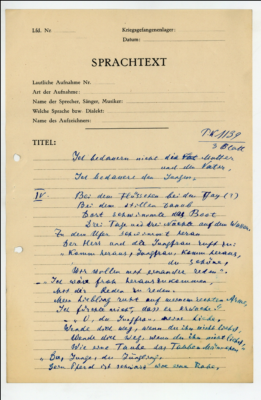 Lfd. Nr.
Kriegsgefangenenlager:
Datum:
SPRACHTEXT
Lautliche Aufnahme Nr.
Art der Aufnahme:
Name der Sprecher, Sänger, Musiker:
Welche Sprache bzw. Dialekt:
Name des Aufzeichners:
PK 1139
3. Blatt
TITEL:
Ich bedauere nicht die Mutter
und den Vater,
Ich bedauere den Jungen.
IV Bei dem Flüsschen bei dem (?)
Bei dem stillen
Dort schwimmte das Boot
Drei Tage und drei Nächte auf dem Wasser.
Zu dem Ufer schwimmt heran
Der Herr und die Jungfrau ruft zu:
"Komm heraus, Jungfrau, komm heraus,
du schöne,
Wir wollen mal einander reden".
"Ich wäre froh herauszukommen,
Mit der Reden zu reden.
Mein Liebling ruht auf meinem rechten Arm,
Ich fürchte nicht, dass er erwacht."
"O, du Jungfrau, meine
Wende doch weg, wenn du ihn nicht liebst,
Wende doch weg, wenn du ihn nicht liebst,
Wie eine Taube das
Der Junge, der Jüngling
Sein Pferd ist schwarz wie ein Rabe,